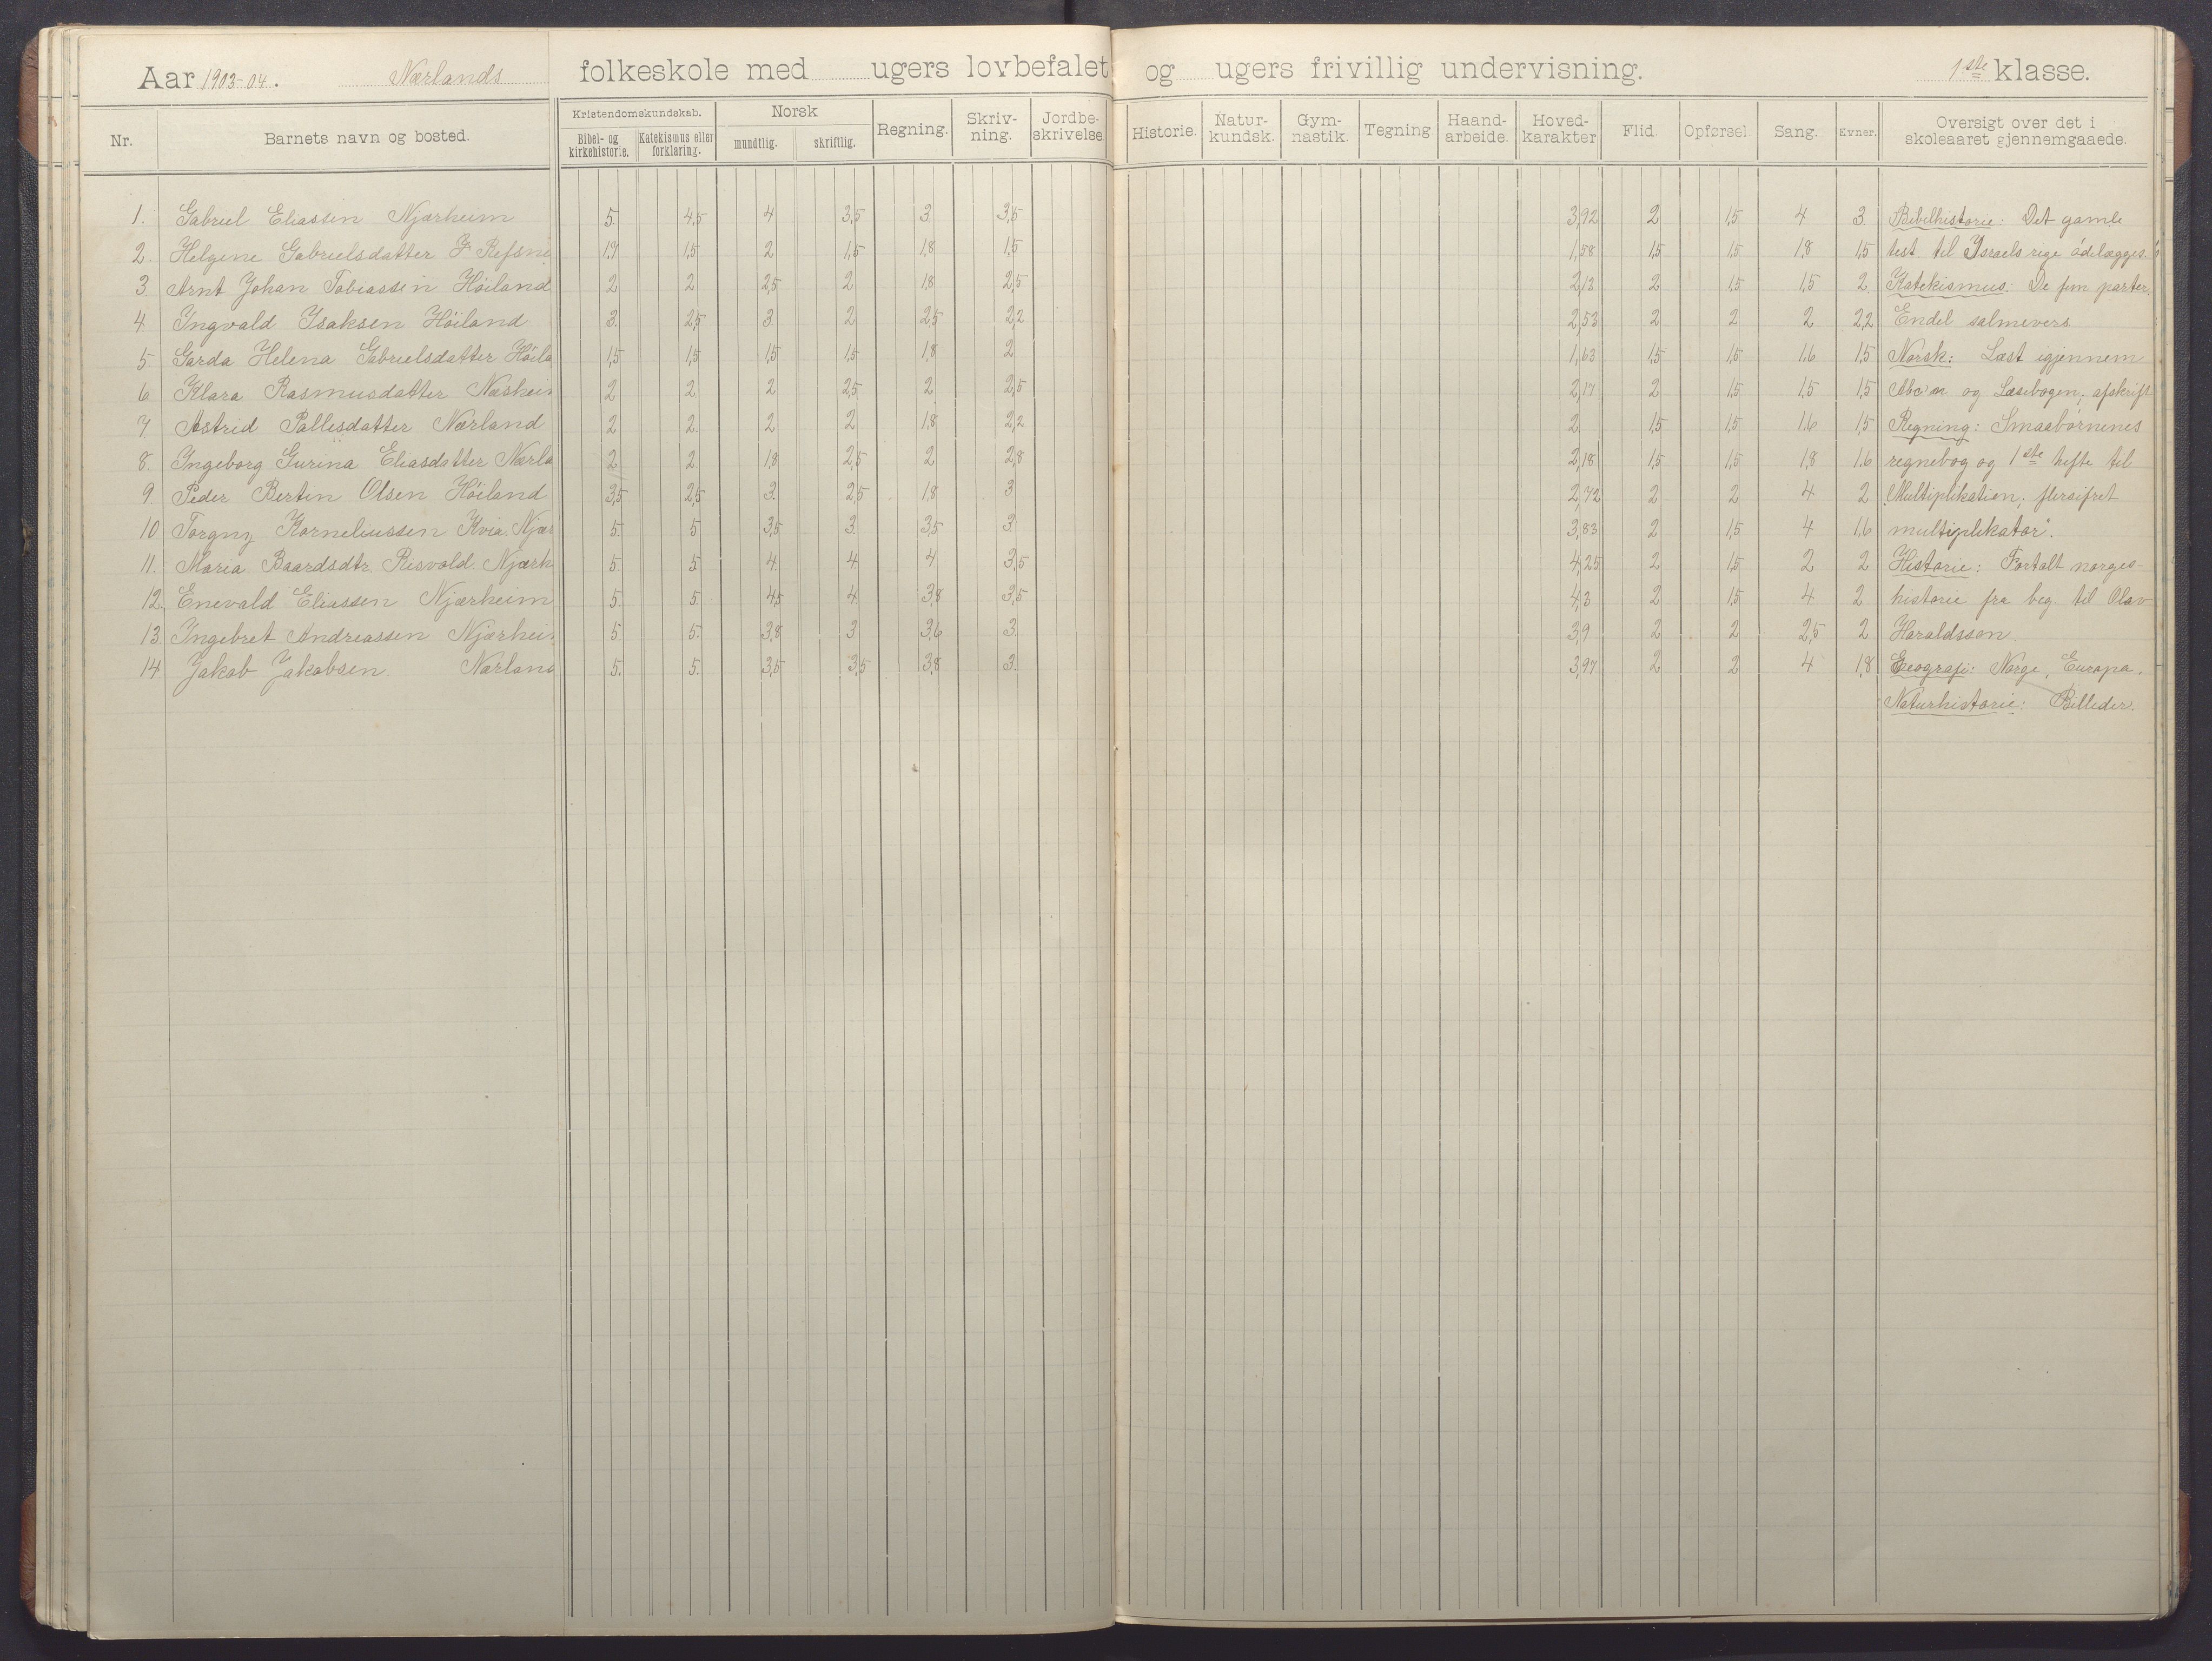 Aar 1903-04. Nærlands folkeskole med ugers lovbefalet og ugers frivillig undervisning. 1ste klasse.
Nr. Barnets navn og bosted. Kristendomskundskab. Bibel- og kirkehistorie. Katekismus eller forklaring. Norsk mundtlig. skriftlig. Regning. Skriv-ning. Jordbe-skrivelse Historie. Natur-kundsk. Gym-nastik. Tegning Haand-arbeide. Hoved-karakter Flid. Opførsel. Sang. Evner. Oversigt over det i skoleaaret gjennemgaaede.
1. Gabriel Eliassen Njærheim 5. 4,5 4 3,5 3 3,5 3,92 2 1,5 4 3 Bibelhistorie: Det gamle
2. Helgene Gabrielsdatter 1,7 1,5 2 1,5 1,8 1,5 1,58 1,5 1,5 1,8 1,5 test. til Israels rige ödelægges.
3. Arnt Johan Tobiassen Höiland 2 2 2,5 2 1,8 2,5 2,13 2 1,5 1,5 2 Katekismus: De fem parter.
4. Ingvald Isaksen Höiland 3. 2,5 3. 2 2,5 2,2 2,53 2 2 2 2,2 Endel salmevers.
5. Garda Helena Gabrielsdatter Höila 1,5 1,5 1,5 1,5 1,8 2 1,63 1,5 1,5 1,6 1,5 Norsk: Læst igjennem
6. Klara Rasmusdatter Næshei 2 2 2 2,5 2 2,5 2,17 2 1,5 1,5 1,5 Abc'en og Læsebogen; afskrift
7. Astrid Pallesdatter Nærland 2 2 2 2 1,8 2,2 2 1,5 1,5 1,6 1,5 Regning: Smaabörnenes
8. Ingeborg Gurina Eliasdatter Nærla 2 2 1,8 2,5 2 2,8 2,18 1,5 1,5 1,8 1,6 regnebog og 1ste hefte til
9. Peder Bertin Olsen Höiland 3,5 2,5 3. 2,5 1,8 3 2,72 2 2 4 2 „Multiplikation; flersifret
10. Torgny Korneliussen Kvia. Njær 5. 5 3,5 3. 3,5 3. 3,83 2 1,5 4 1,6 multiplikator".
11. Maria Baardsdtr. Risvold. Njærh 5. 5 4. 4. 4 3,5 4,25 2 1,5 2 2 Historie: Fortalt norges-
12. Enevald Eliassen Njærheim 5. 5. 4,5 4. 3,8 3,5 4,3 2 1,5 4 2 historie fra beg. til Olav
13. Ingebret Andreassen Njærhei 5 5. 3,8 3 3,6 3. 3,9 2 2 2,5 2 Haraldsson.
14. Jakob Jakobsen. Nærland 5. 5. 3,5 3,5 3,8 3. 3,97 2 2 4 1,8 Geografi: Norge, Europa.
Naturhistorie: Billeder.